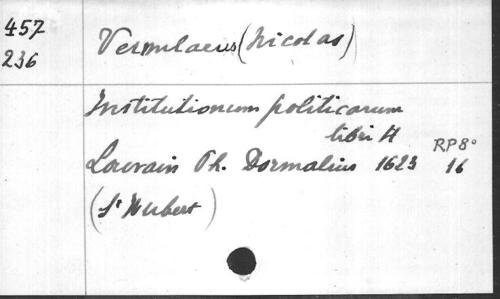 457
236
Vernulaeus (Nicolas)
Institutionum politicarum
libri 4
Louvain Ph. Dormalius 1623
RP8°
16
(St Hubert)